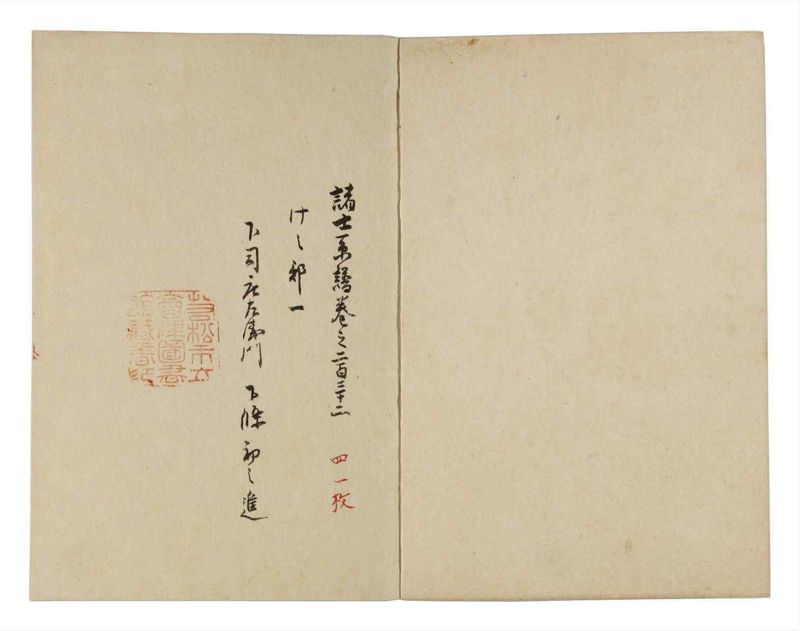 諸士系譜巻之二百三十二
四一枚
け之部一
下司庄左衛門 下條初之進
若松市立會津圖書館藏書印